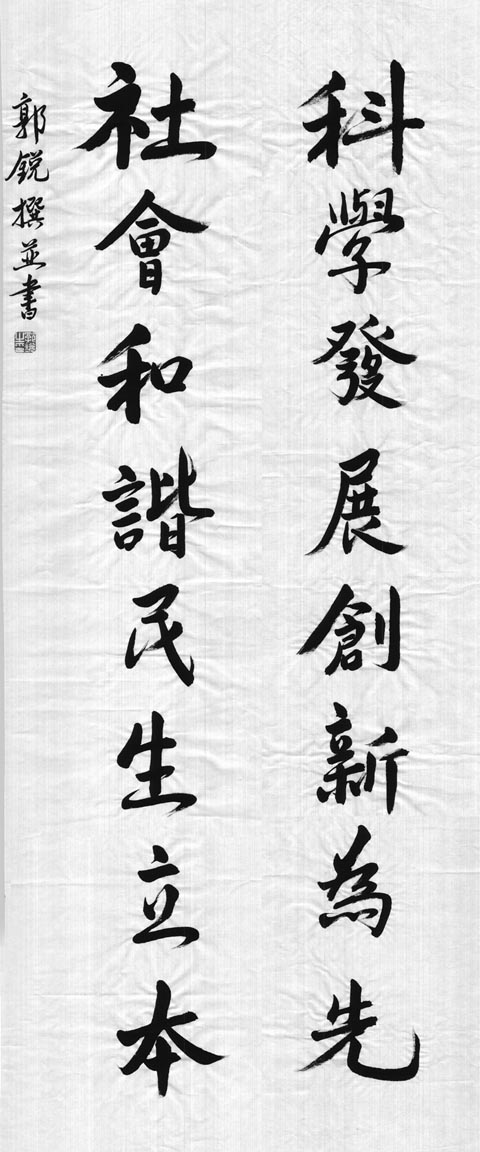 科學發展創新為先
社會和諧民生立本
郭銳撰並書